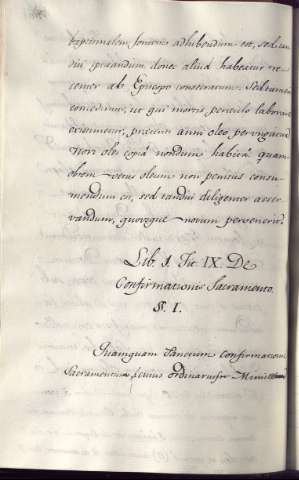 baptismalem fontem adhibendum est, sed tam
diu praestandum donec aliud habeatur re-
center ab Episcopo consecratum. Sed tamen
conceditur, ut qui mortis periculo laborant
praeteriti anni oleo perungantur
novi olei copiâ nondum habitâ quam
obrem vetus oleum non penitus consu-
mendum est, sed tandiu diligenter asser-
vandum, quousque novum pervenerit.
Lib. I. Tit IX. De
Confirmationis Sacramento.
§. I.
Quamquam Sanctum Confirmationis
Sacramentum ordinarius